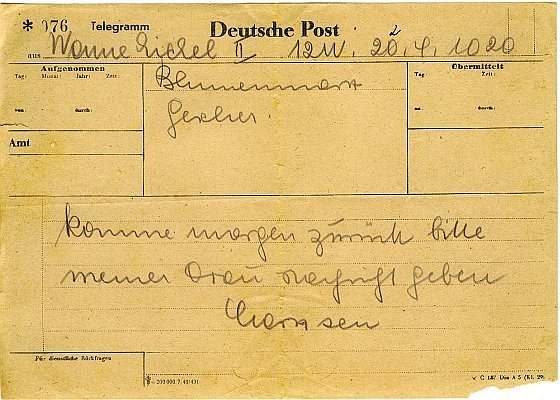 * 076 Telegramm Deutsche Post
aus Wanne Eickel II 12 W. 20/4. 1020
Aufgenommen
Tag: Monat: Jahr: Zeit:
von: durch:
Amt
Blumenmark
Übermittelt
Tag: Zeit:
an: durch:
komme morgen zurück bitte
meiner Frau Nachricht geben
Für dienstliche Rückfragen
C 187 Din A 5 (Kl. 29)